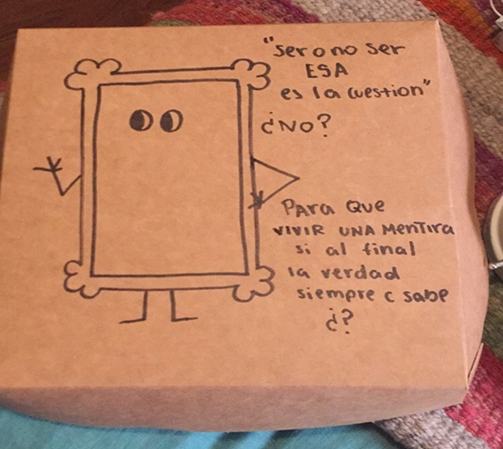 "ser o no ser
ESA
es la cuestion"
¿NO?
Para que
VIVIR UNA MENTIRA
si al final
la verdad
siempre c sabe
¿?